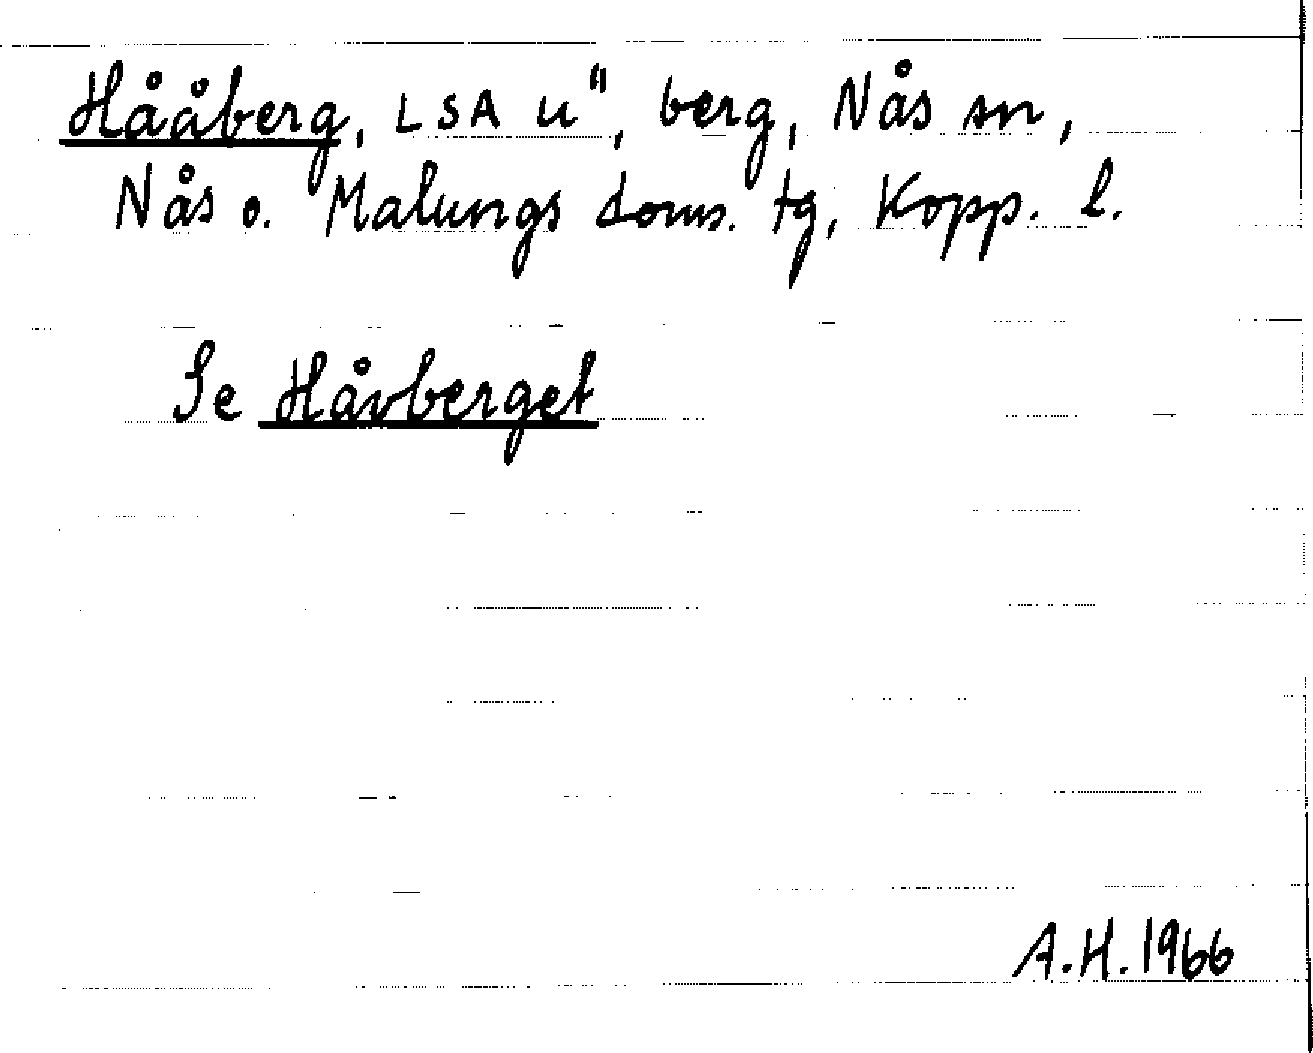 Hååberg, LSA U", berg, Nås sn,
Nås o. Malungs doms. tg, Kopp. l.
Se Håvberget
A.H. 1966